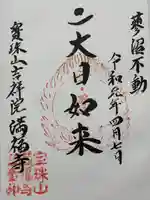 蓼沼不動
令和元年四月七日
大日如来
宝珠山吉祥院満福寺
宝珠山